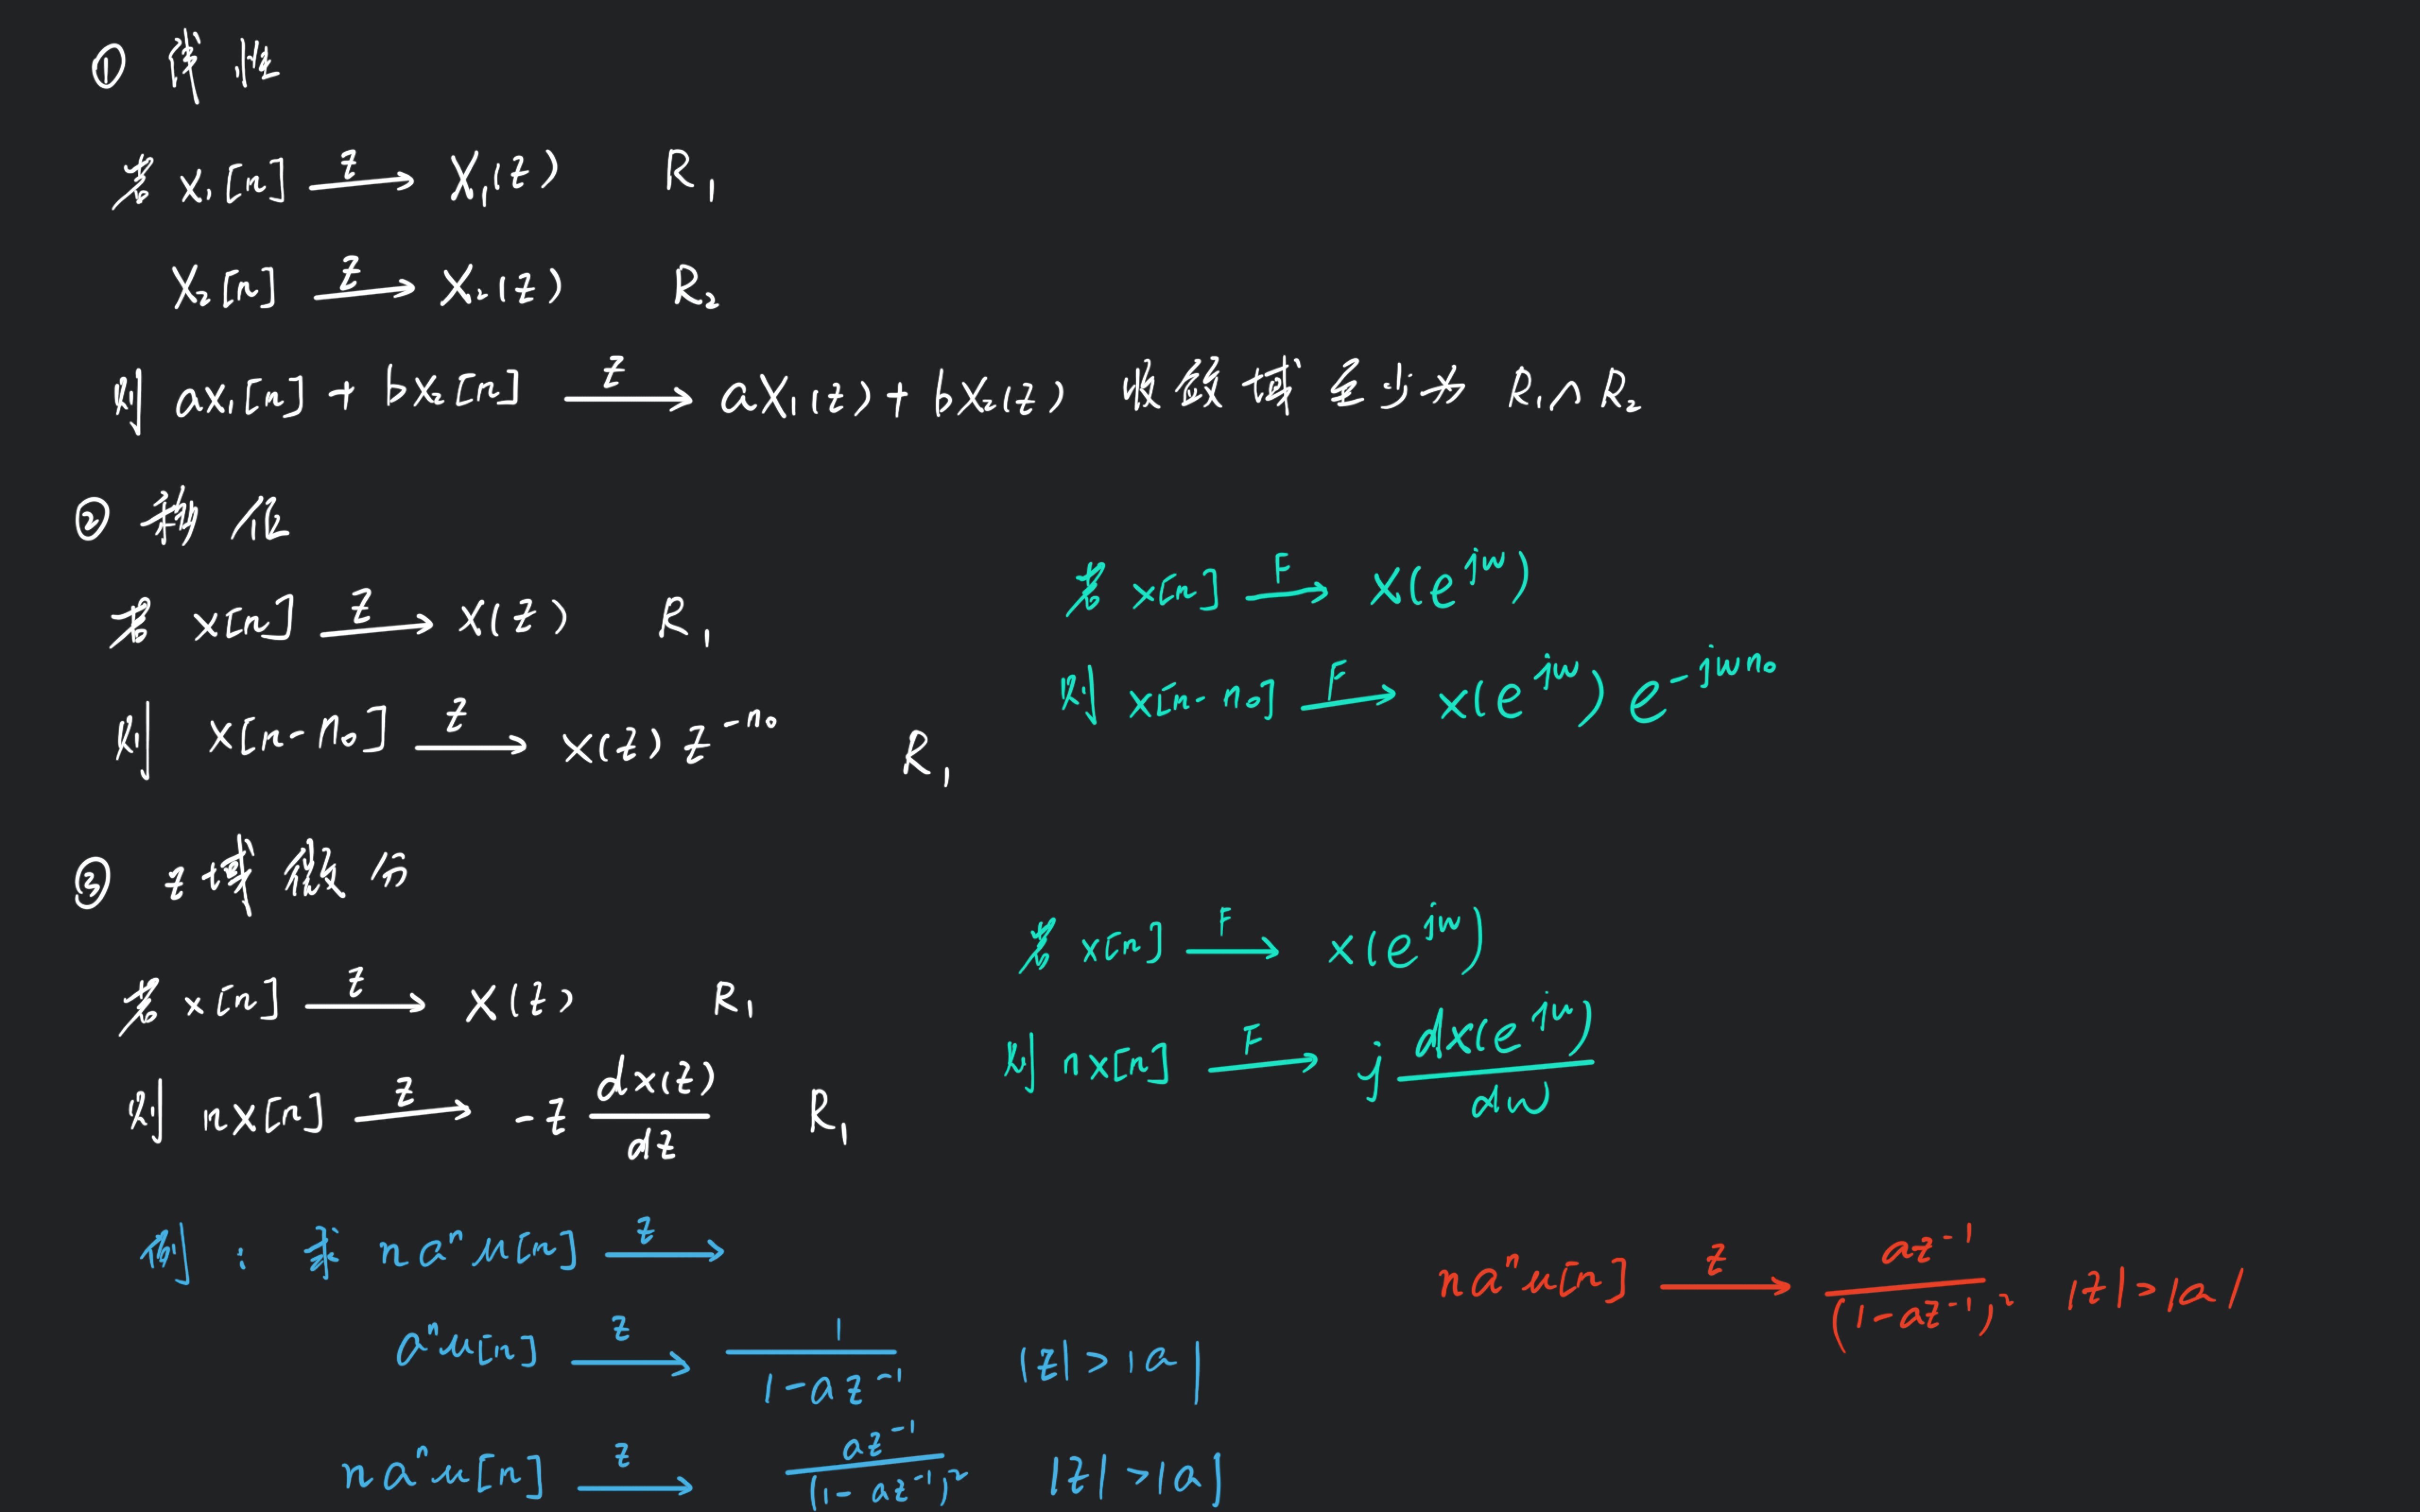 ① 线性
若 x₁[n] →(z) X₁(z) R₁
x₂[n] →(z) X₂(z) R₂
则 ax₁[n] + bx₂[n] →(z) aX₁(z) + bX₂(z) 收敛域至少为 R₁∩R₂
② 移位
若 x[n] →(z) X(z) R₁
则 x[n-n₀] →(z) X(z) z^{-n₀} R₁
若 x[n] →(F) X(e^{jω})
则 x[n-n₀] →(F) X(e^{jω}) e^{-jωn₀}
③ z域微分
若 x[n] →(z) X(z) R₁
则 nx[n] →(z) -z dX(z)/dz R₁
若 x[n] →(F) X(e^{jω})
则 nx[n] →(F) j dX(e^{jω})/dω
例：求 naⁿu[n] →(z)
aⁿu[n] →(z) 1/(1-az⁻¹) |z|>|a|
naⁿu[n] →(z) az⁻¹/(1-az⁻¹)² |z|>|a|
naⁿu[n] →(z) az⁻¹/(1-az⁻¹)² |z|>|a|